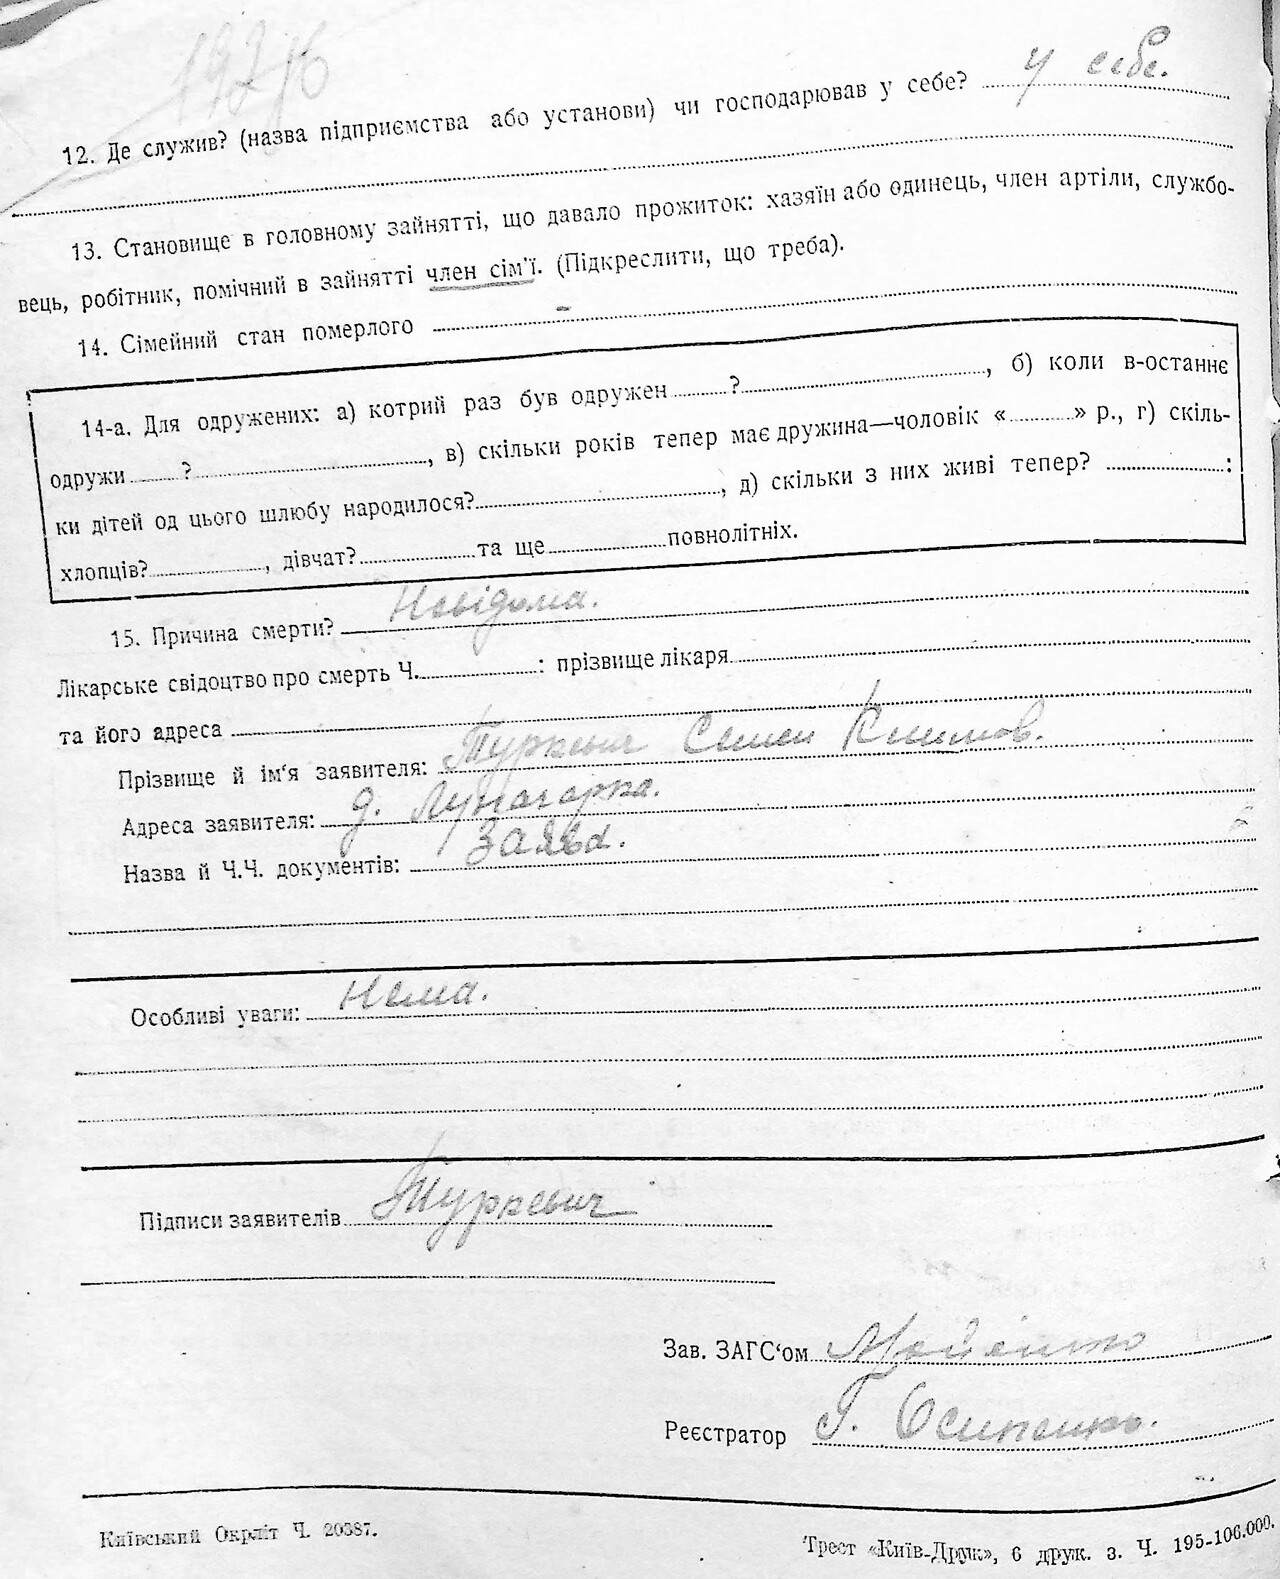 у себе.
12. Де служив? (назва підприємства або установи) чи господарював у себе?
13. Становище в головному зайнятті, що давало прожиток: хазяїн або одинець, член артіли, службо-
вець, робітник, помічний в зайнятті член сім'ї. (Підкреслити, що треба).
14. Сімейний стан померлого -
14-а. Для одружених: а) котрий раз був одружен ? , б) коли в-останнє
одружи ? , в) скільки років тепер має дружина—чоловік « » р., г) скіль-
ки дітей од цього шлюбу народилося? , д) скільки з них живі тепер? :
хлопців? , дівчат? та ще повнолітніх.
15. Причина смерти? Невідома.
Лікарське свідоцтво про смерть Ч. : прізвище лікаря
та його адреса
Прізвище й ім'я заявителя: Туркевич Семен Климов.
Адреса заявителя: д. Луначарка.
Назва й Ч.Ч. документів: Заява.
Особливі уваги: Нема.
Підписи заявителів Туркевич
Зав. ЗАГС'ом
Реєстратор Г. Осипенко.
Київський Окрліт Ч. 20387.
Трест «Київ-Друк», 6 друк. з. Ч. 195-106.000.